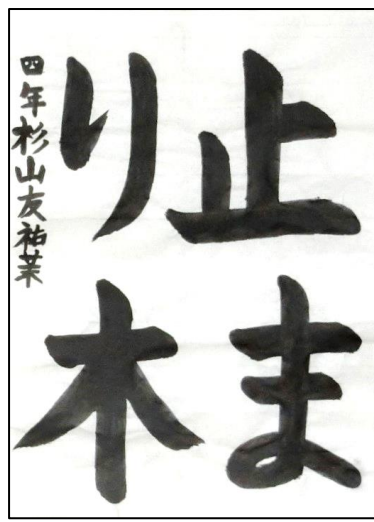 止ま
り木
四年杉山友祐茉